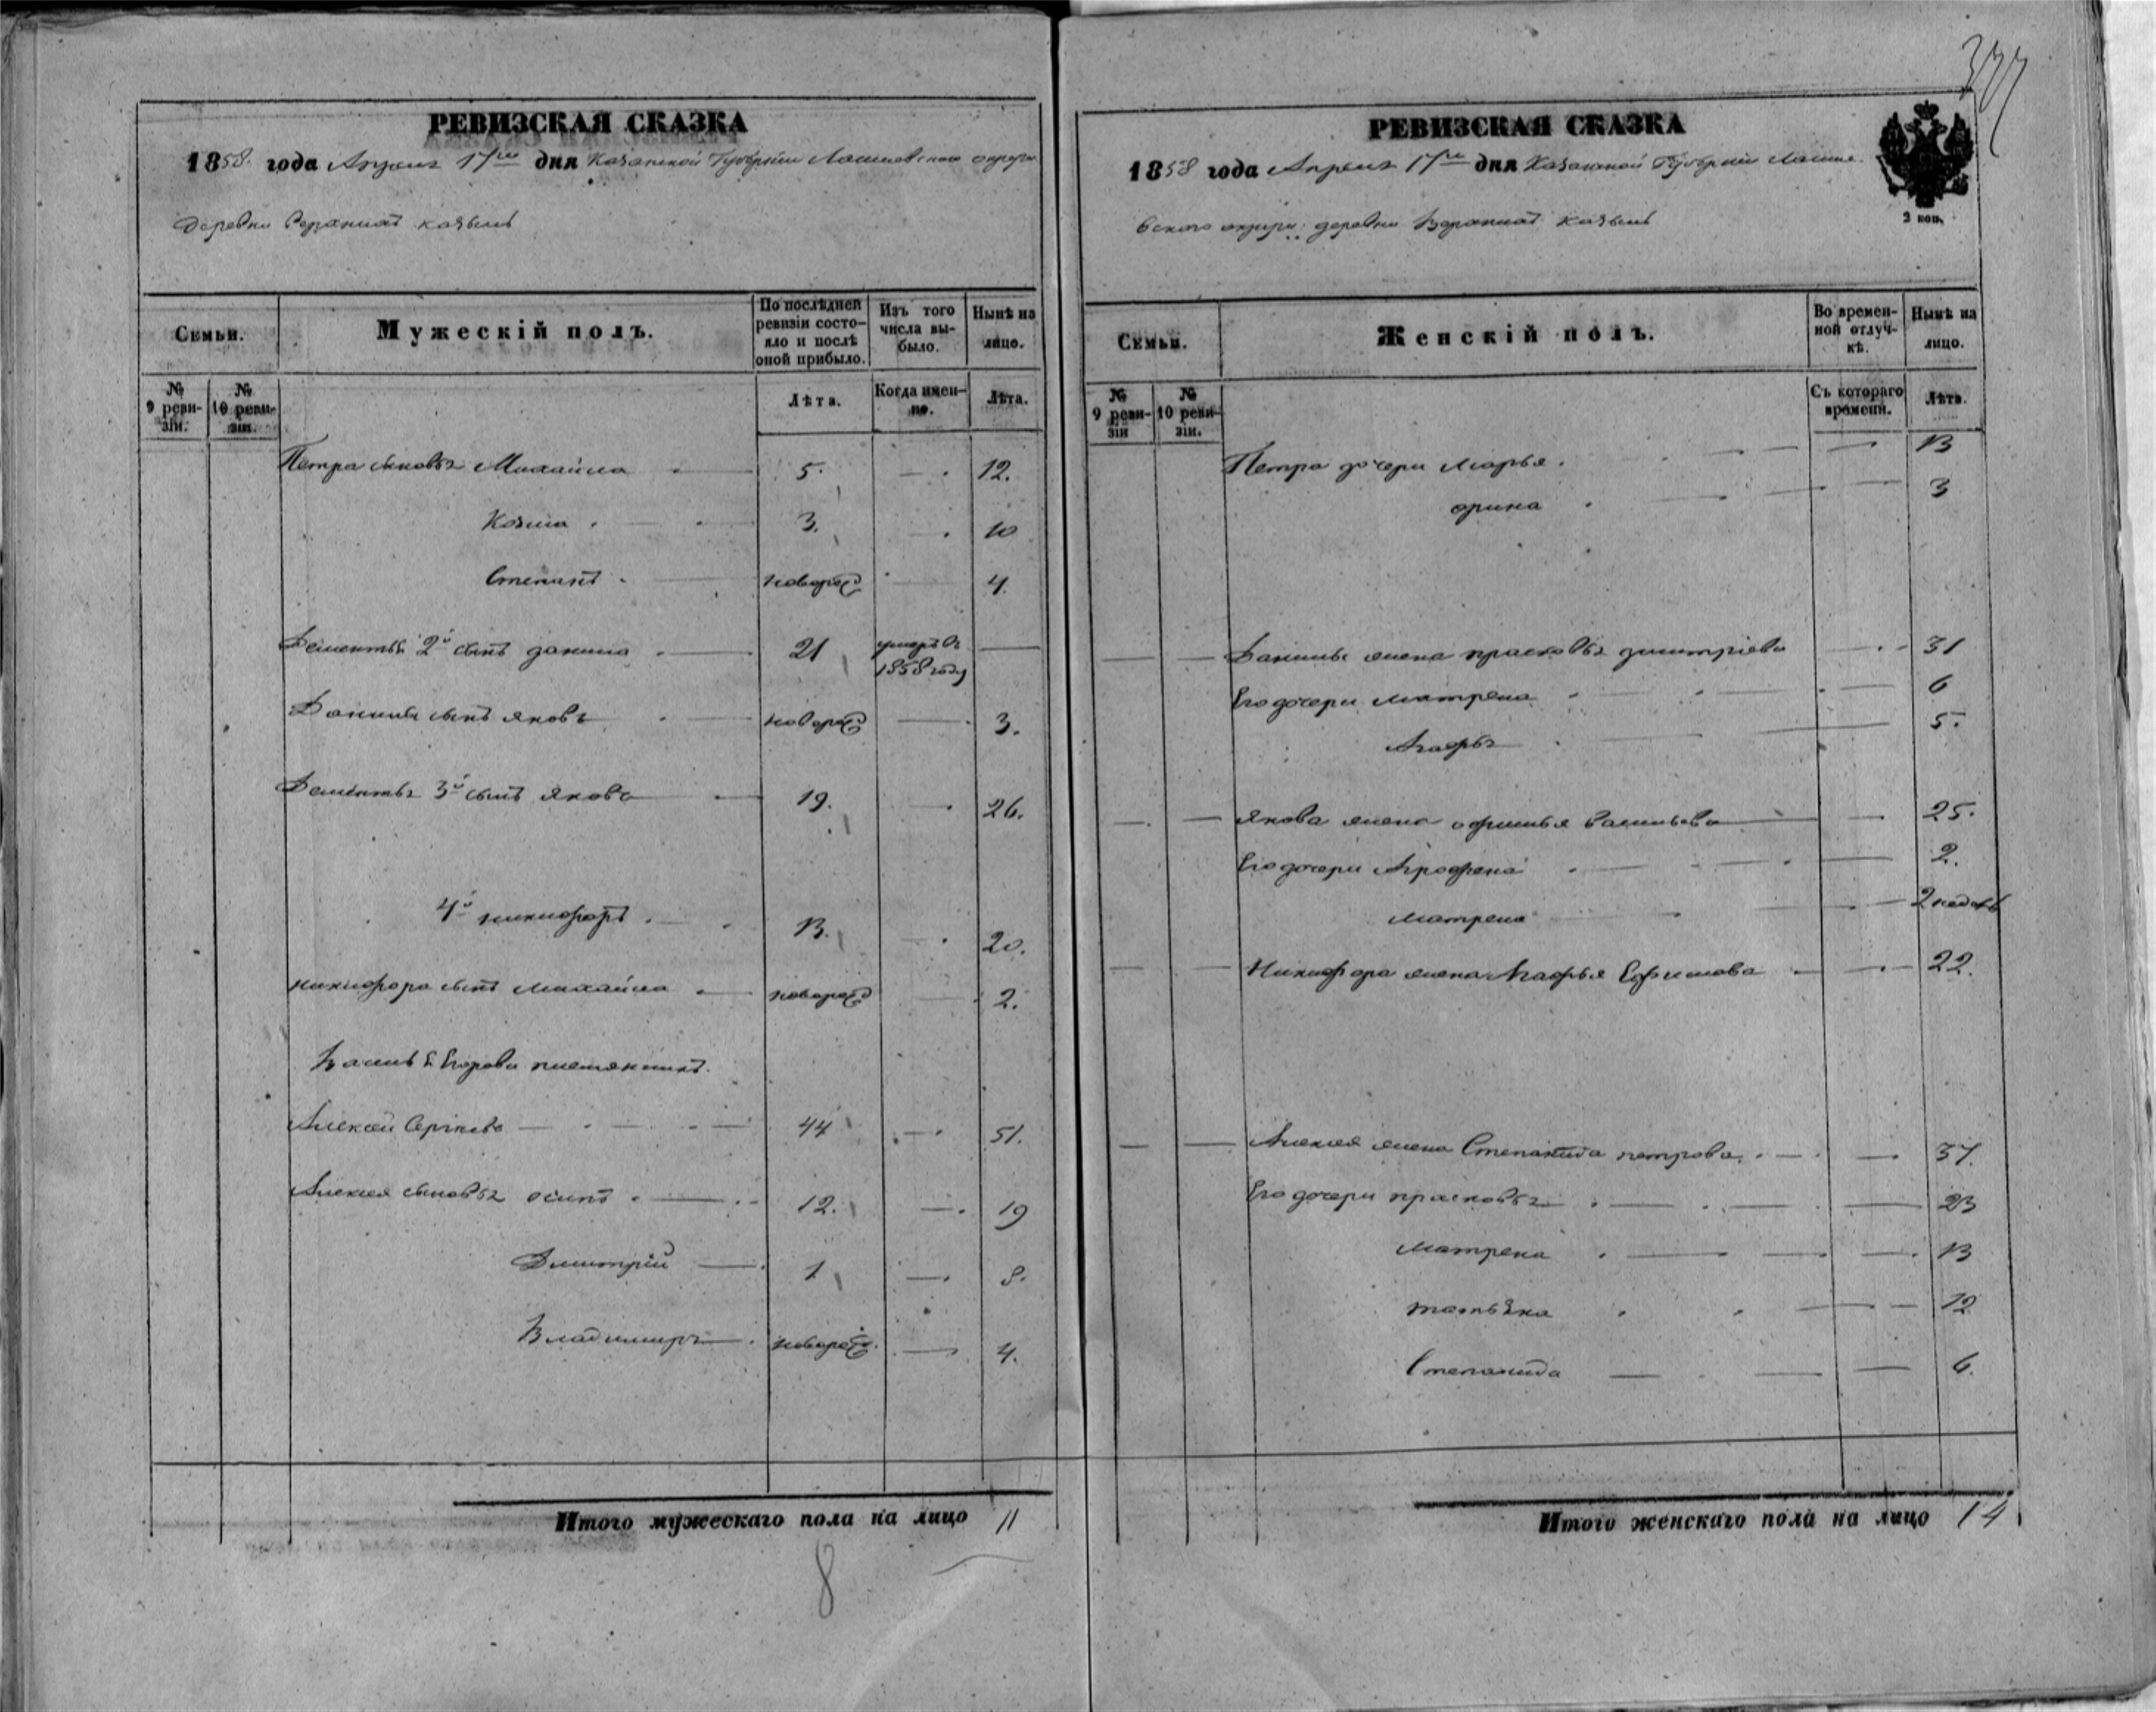 377
РЕВИЗСКАЯ СКАЗКА
1858 года Апреля 17го дня Казанской Губернии Лаишевского округа
деревни Казыли
Семьи.
Мужескій полъ.
По послѣдней ревизіи состояло и послѣ оной прибыло.
Изъ того числа выбыло.
Нынѣ на лицо.
№ 9 ревизіи.
№ 10 ревизіи.
Лѣта.
Когда именно.
Лѣта.
Петра сыновья Михайла 5. 12.
Козма 3. 10
Степанъ новорож 4.
Дементья 2й сынъ данила 21 умеръ въ 1858 году
Данилы сынъ яковъ новорож 3.
Дементья 3й сынъ яковъ 19. 26.
4й никифоръ 13. 20.
никифора сынъ михайла новорож 2.
Василья Егорова племянникъ
Алексей Сергѣевъ 44 51.
Алексея сыновья осипъ 12. 19
Дмитрій 1 8.
Владимиръ новорож. 4.
Итого мужескаго пола на лицо 11
8
РЕВИЗСКАЯ СКАЗКА
1858 года Апреля 17го дня Казанской Губернии Лаише
вского округа деревни Казыли
2 коп.
Семьи.
Женскій полъ.
Во временной отлучкѣ.
Нынѣ на лицо.
№ 9 ревизіи
№ 10 ревизіи.
Съ котораго времени.
Лѣта.
Петра дочери Марья 13
орина 3
Данилы жена прасковья дмитріева 31
Его дочери матрена 6
Агафья 5.
якова жена офимья васильева 25.
Его дочери Аграфена 2.
матрена 2 недѣль
Никифора жена Агафья Ефимова 22.
Алексея жена Степанида петрова 37.
Его дочери прасковья 23
матрена 13
татьяна 12
Степанида 6.
Итого женскаго пола на лицо 14